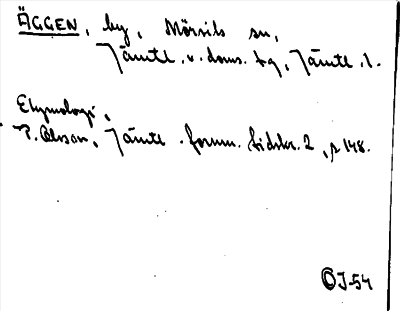 ÄGGEN, by, Mörsils sn,
Jämtl. v. doms. tg, Jämtl. l.
Etymologi,
P. Olsson, Jämtl. fornm. tidskr. 2, s 148.
OJ-54